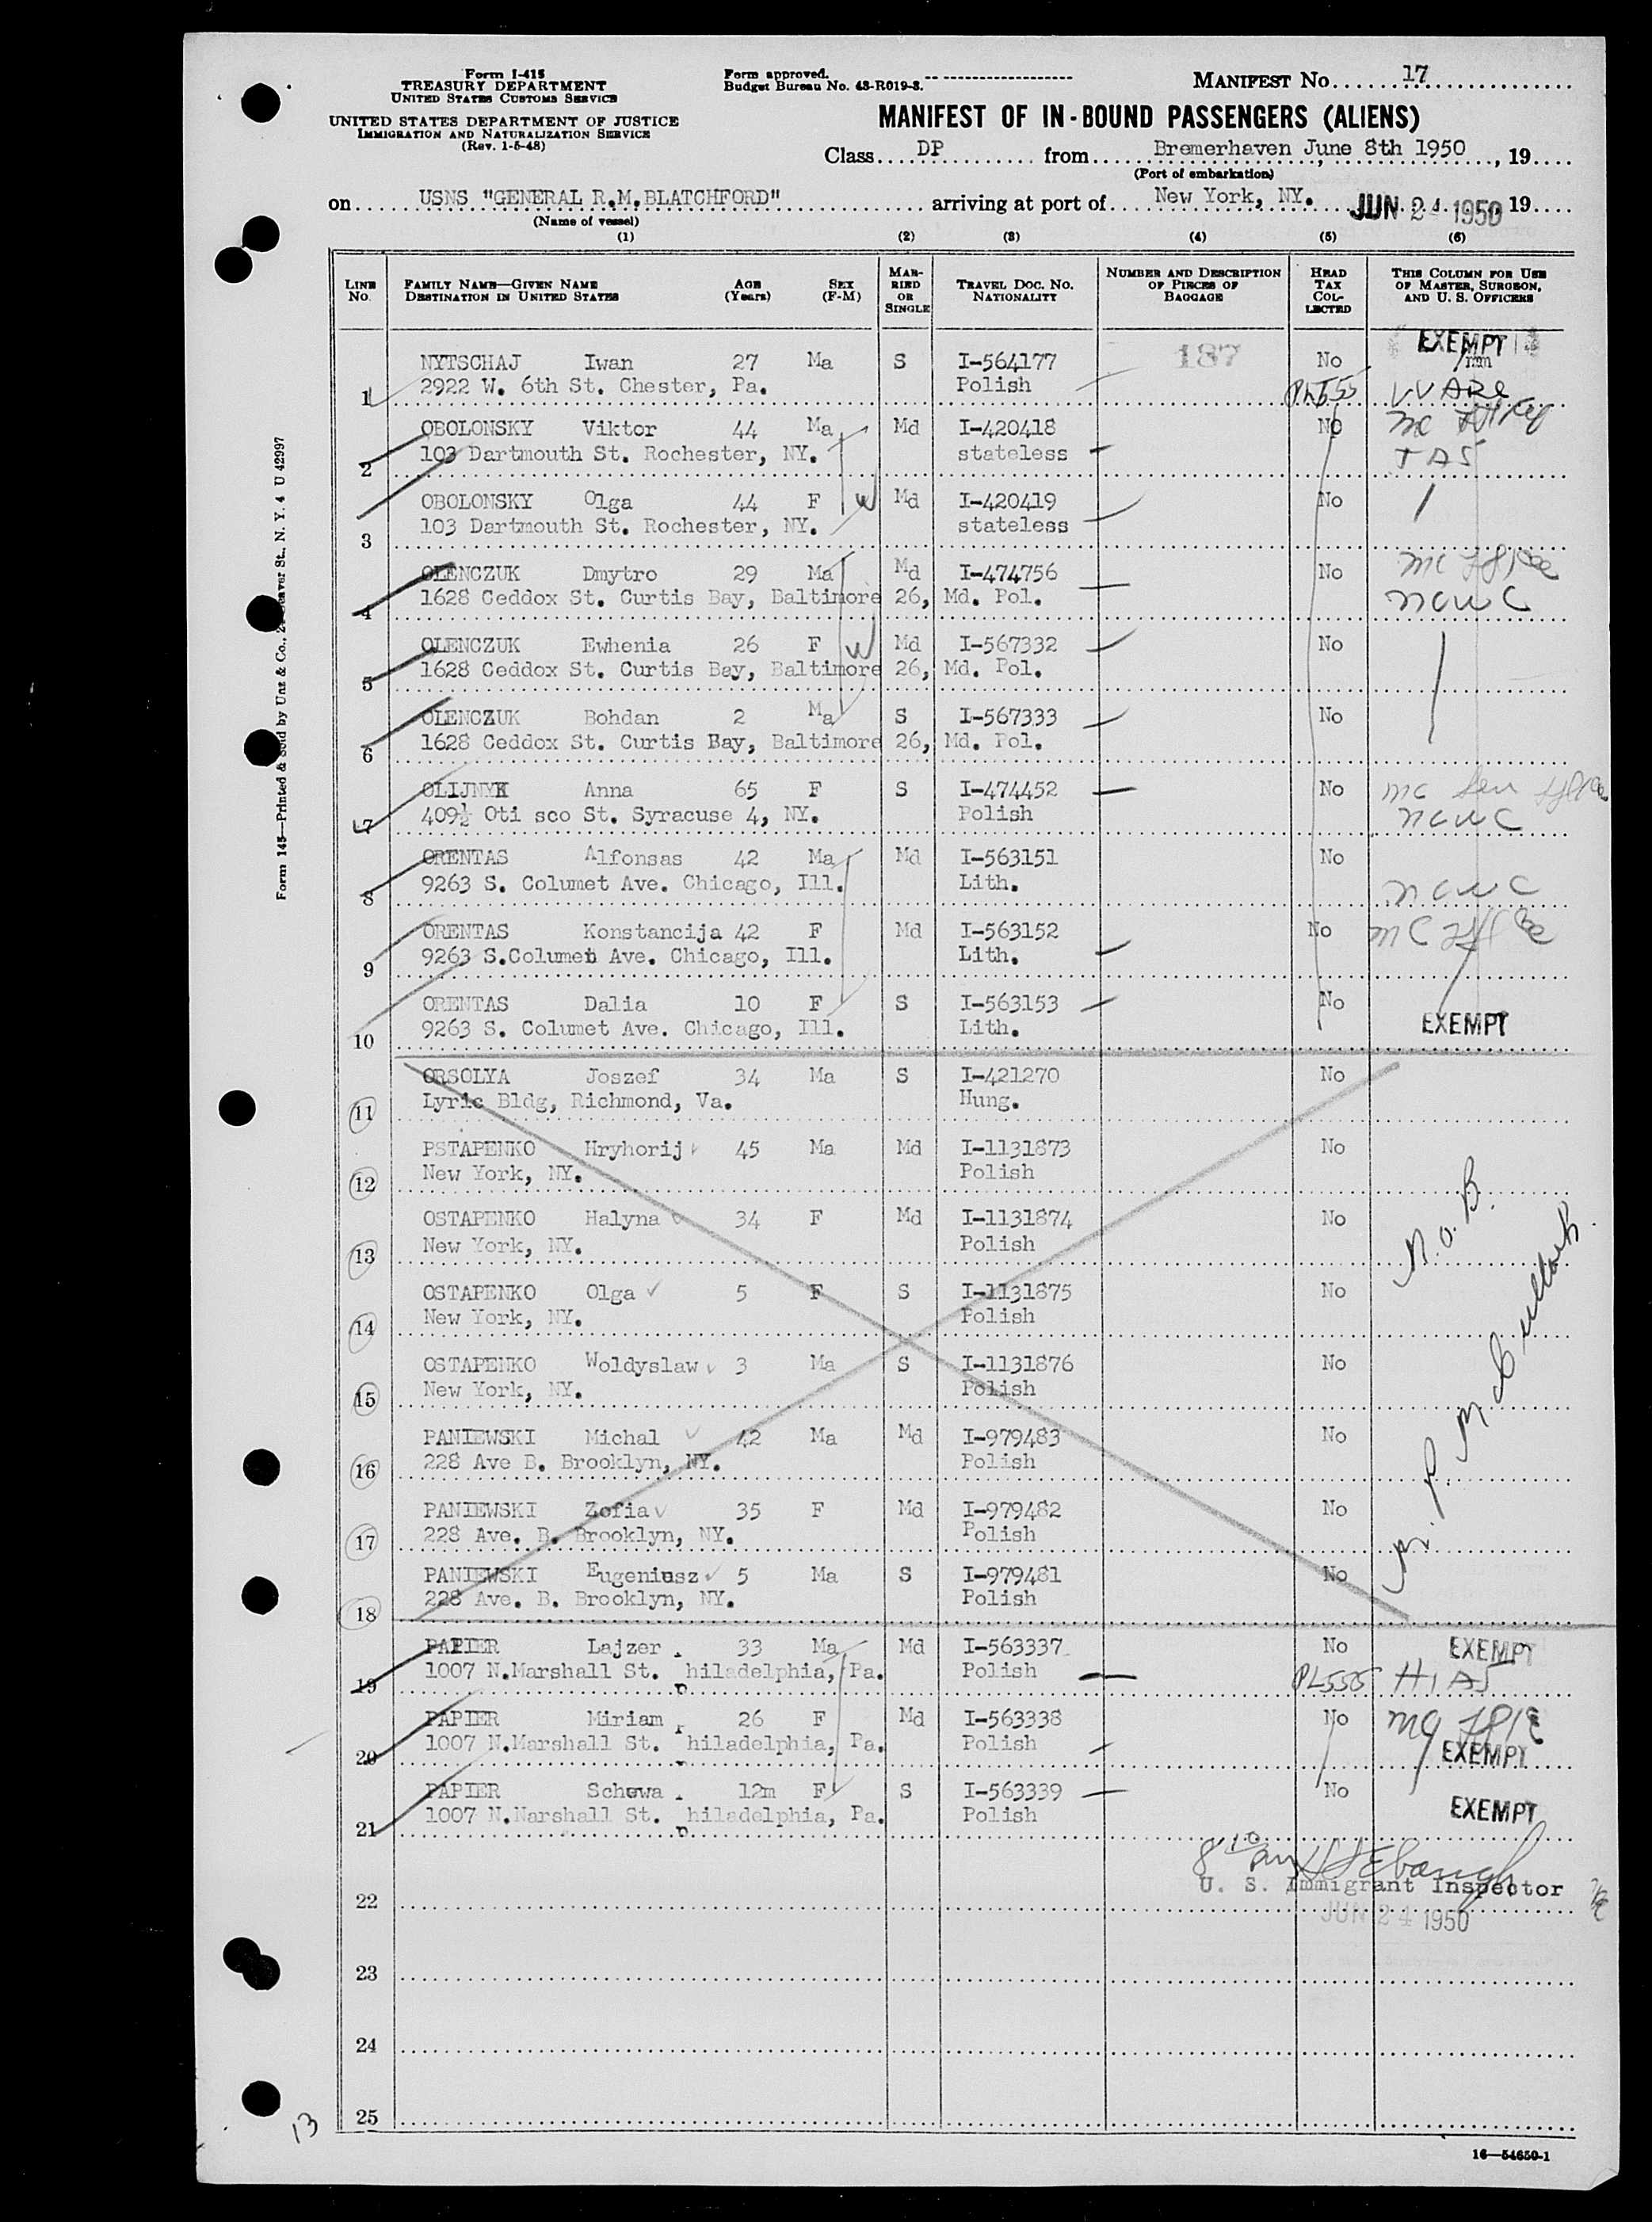 Form I-415
TREASURY DEPARTMENT
UNITED STATES CUSTOMS SERVICE
UNITED STATES DEPARTMENT OF JUSTICE
IMMIGRATION AND NATURALIZATION SERVICE
(Rev. 1-5-48)
Form approved.
Budget Bureau No. 43-R019-3.
MANIFEST No. 17
MANIFEST OF IN-BOUND PASSENGERS (ALIENS)
Class DP from Bremerhaven June 8th 1950, 19
(Port of embarkation)
on USNS "GENERAL R.M.BLATCHFORD" arriving at port of New York, NY. JUN 24 1950 19
(Name of vessel)
(1) (2) (3) (4) (5) (6)
LINE No. FAMILY NAME—GIVEN NAME DESTINATION IN UNITED STATES AGE (Years) SEX (F-M) MARRIED OR SINGLE TRAVEL DOC. NO. NATIONALITY NUMBER AND DESCRIPTION OF PIECES OF BAGGAGE HEAD TAX COLLECTED THIS COLUMN FOR USE OF MASTER, SURGEON, AND U. S. OFFICERS
EXEMPT
NYTSCHAJ Iwan 27 Ma S I-564177 187 No
1 2922 W. 6th St. Chester, Pa. Polish PL555
OBOLONSKY Viktor 44 Ma Md I-420418 No
2 103 Dartmouth St. Rochester, NY. stateless
OBOLONSKY Olga 44 F W Md I-420419 No
3 103 Dartmouth St. Rochester, NY. stateless
OLENCZUK Dmytro 29 Ma Md I-474756 No
4 1628 Ceddox St. Curtis Bay, Baltimore 26, Md. Pol. NCWC
OLENCZUK Ewhenia 26 F W Md I-567332 No
5 1628 Ceddox St. Curtis Bay, Baltimore 26, Md. Pol.
OLENCZUK Bohdan 2 Ma S I-567333 No
6 1628 Ceddox St. Curtis Bay, Baltimore 26, Md. Pol.
OLIJNYK Anna 65 F S I-474452 No
7 409½ Oti sco St. Syracuse 4, NY. Polish NCWC
ORENTAS Alfonsas 42 Ma Md I-563151 No
8 9263 S. Columet Ave. Chicago, Ill. Lith. NCWC
ORENTAS Konstancija 42 F Md I-563152 No
9 9263 S.Columet Ave. Chicago, Ill. Lith.
ORENTAS Dalia 10 F S I-563153 No
10 9263 S. Columet Ave. Chicago, Ill. Lith. EXEMPT
ORSOLYA Joszef 34 Ma S I-421270 No
11 Lyric Bldg, Richmond, Va. Hung.
PSTAPENKO Hryhorij 45 Ma Md I-1131873 No
12 New York, NY. Polish
OSTAPENKO Halyna 34 F Md I-1131874 No
13 New York, NY. Polish
N.O.B.
OSTAPENKO Olga 5 F S I-1131875 No
14 New York, NY. Polish
OSTAPENKO Woldyslaw 3 Ma S I-1131876 No
15 New York, NY. Polish
PANIEWSKI Michal 42 Ma Md I-979483 No
16 228 Ave B. Brooklyn, NY. Polish
PANIEWSKI Zofia 35 F Md I-979482 No
17 228 Ave. B. Brooklyn, NY. Polish
PANIEWSKI Eugeniusz 5 Ma S I-979481 No
18 228 Ave. B. Brooklyn, NY. Polish
PAPIER Lajzer 33 Ma Md I-563337 No EXEMPT
19 1007 N.Marshall St. Philadelphia, Pa. Polish PL555 HIAS
PAPIER Miriam 26 F Md I-563338 No
20 1007 N.Marshall St. Philadelphia, Pa. Polish EXEMPT
PAPIER Schewa 12m F S I-563339 No
21 1007 N.Marshall St. Philadelphia, Pa. Polish EXEMPT
U. S. Immigrant Inspector
22 JUN 24 1950
23
24
25
13
16—54650-1